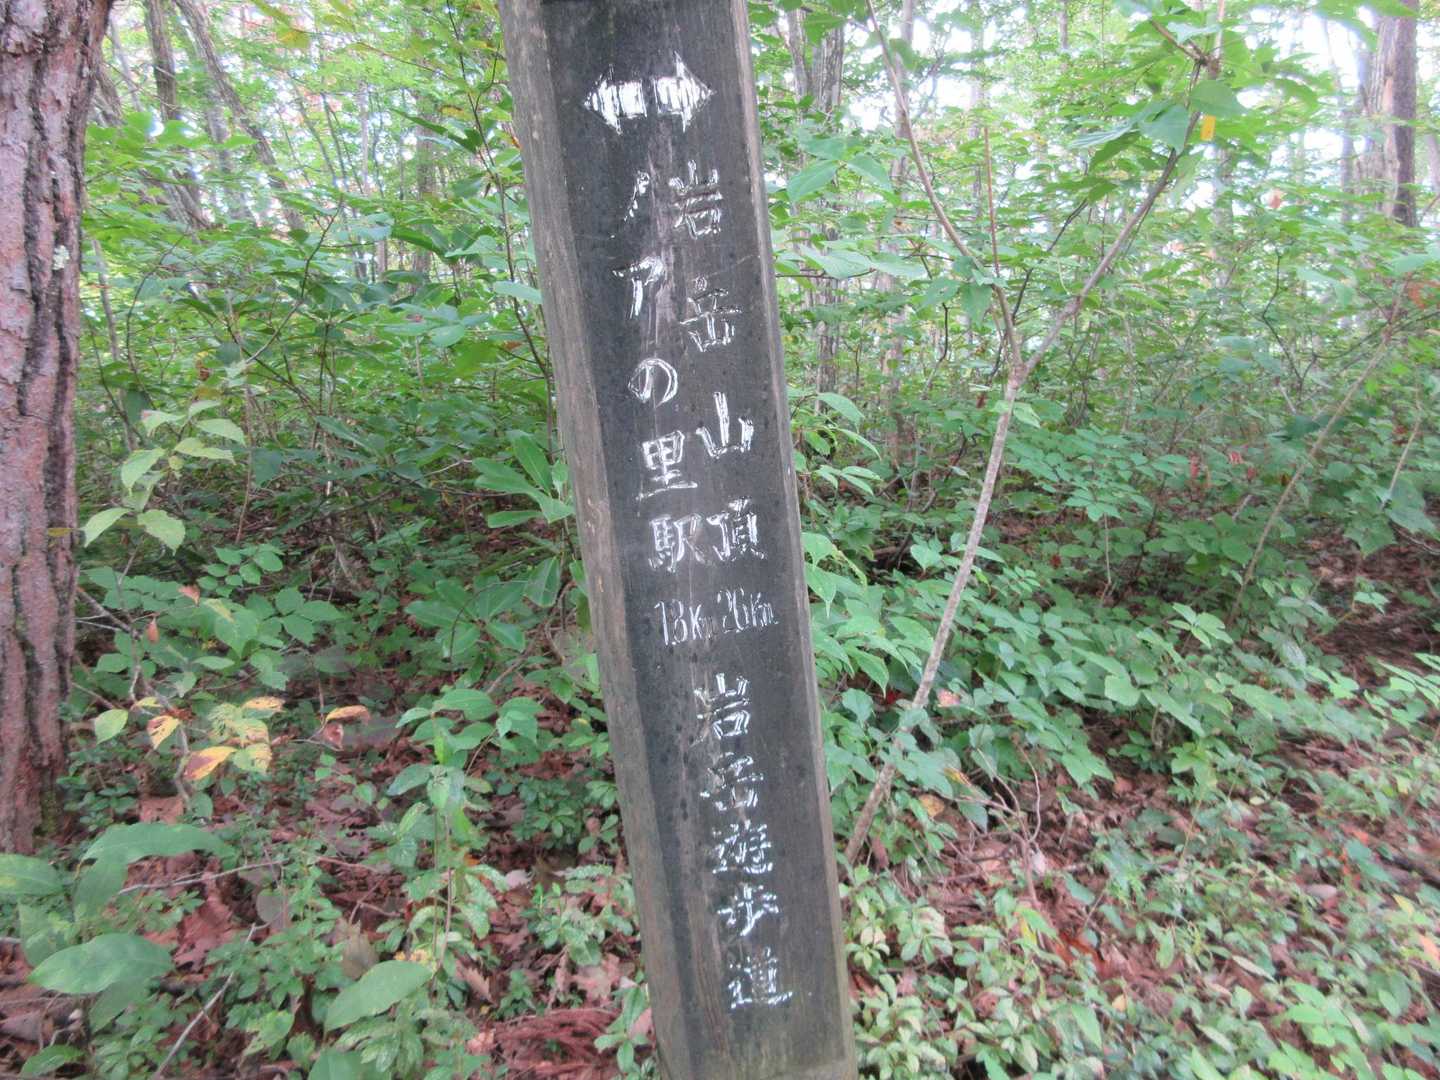 岩岳山頂 2.6Km
パアの里駅 1.8Km
岩岳遊歩道